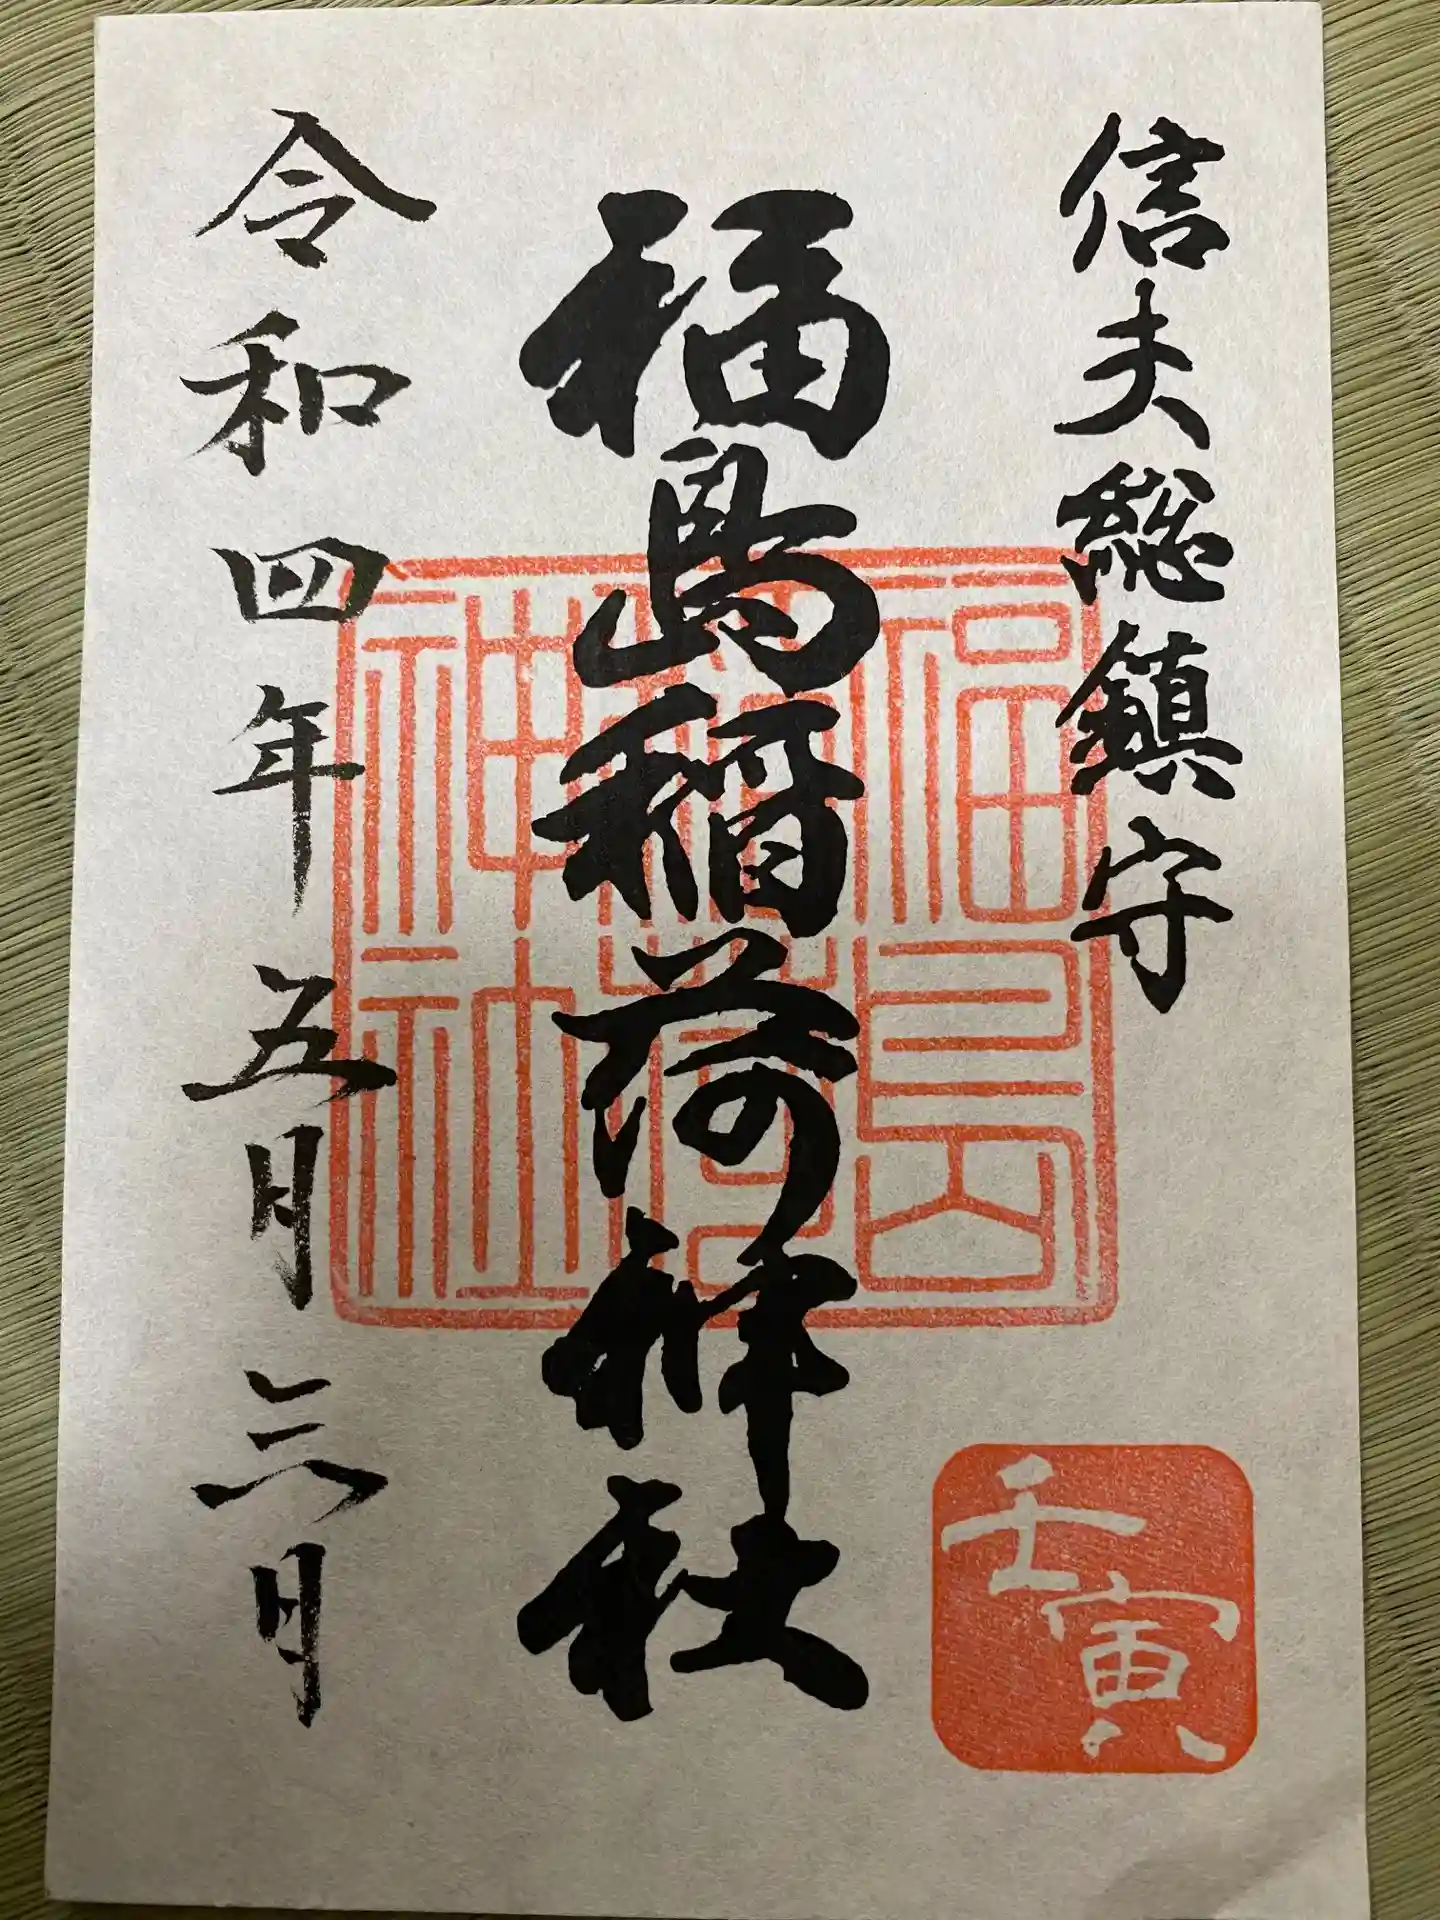 信夫総鎮守
福島稲荷神社
令和四年五月三日
福島
稲荷
神社
壬寅